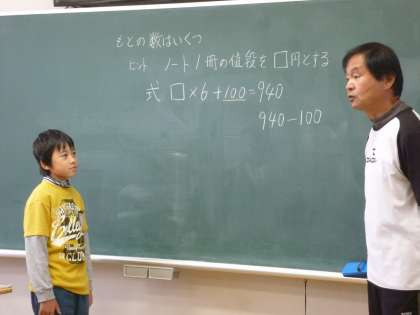 もとの数はいくつ
ヒント ノート1冊の値段を□円とする
式 □×6+100=940
940-100